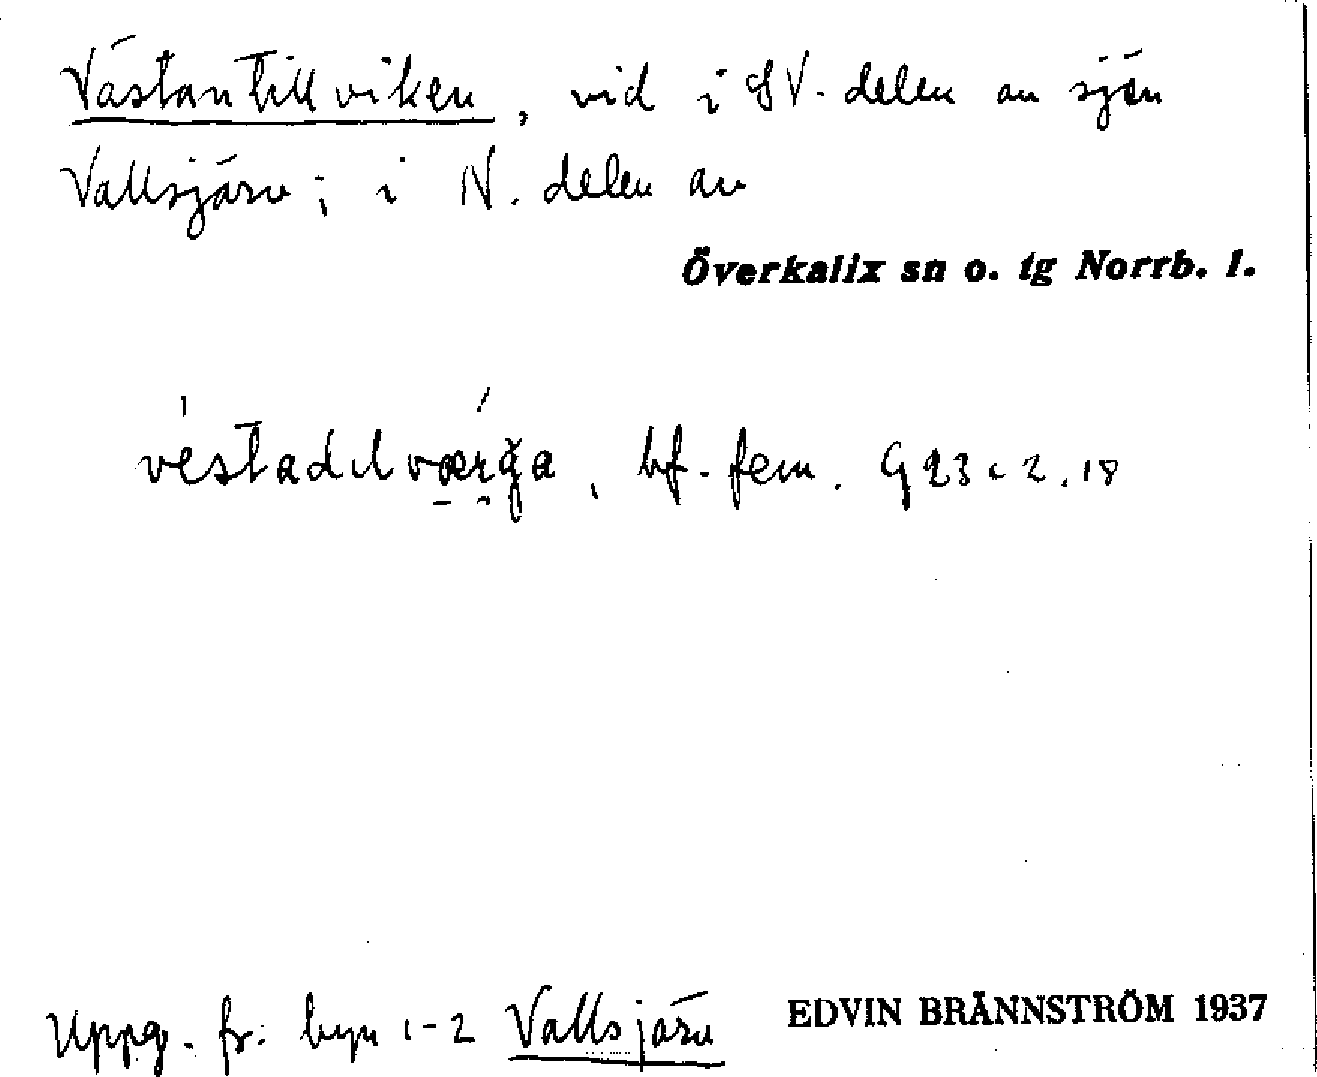 Västantillviken, vid i SV. delen av sjön
Vallsjärv; i N. delen av
Överkalix sn o. tg Norrb. l.
bf. fem. 2.18
Uppg. fr. byn 1-2 Vallsjärv
EDVIN BRÄNNSTRÖM 1937